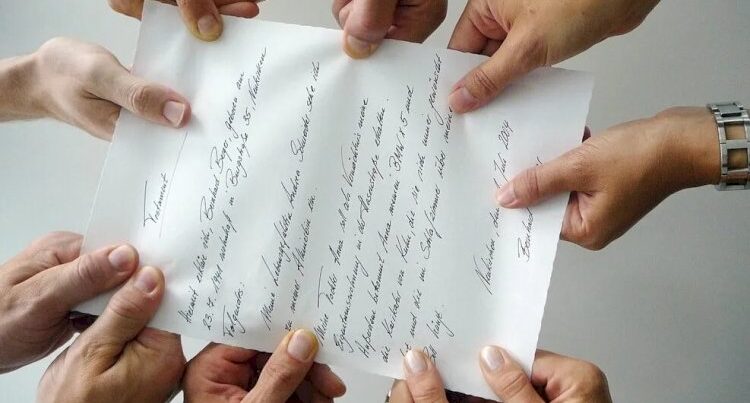 Testament
Hiermit erkläre ich, Bernhard Beyer, geboren am
23.4.1941 wohnhaft in Burgstraße 35, Neukirchen
Folgendes:
Meine Lebensgefährtin Andrea Schwarz setze ich
zu meiner Alleinerbin ein.
Meine Tochter Anna soll als Vermächtnis meine
Eigentumswohnung in der Rosenstraße erhalten.
Außerdem bekommt Anna meinen BMW X5 und
die Halskette von Klein, die sie sich immer gewünscht
hat und die im Schlafzimmer über meinem
hängt.
den 1. Juli 2014
Bernhard